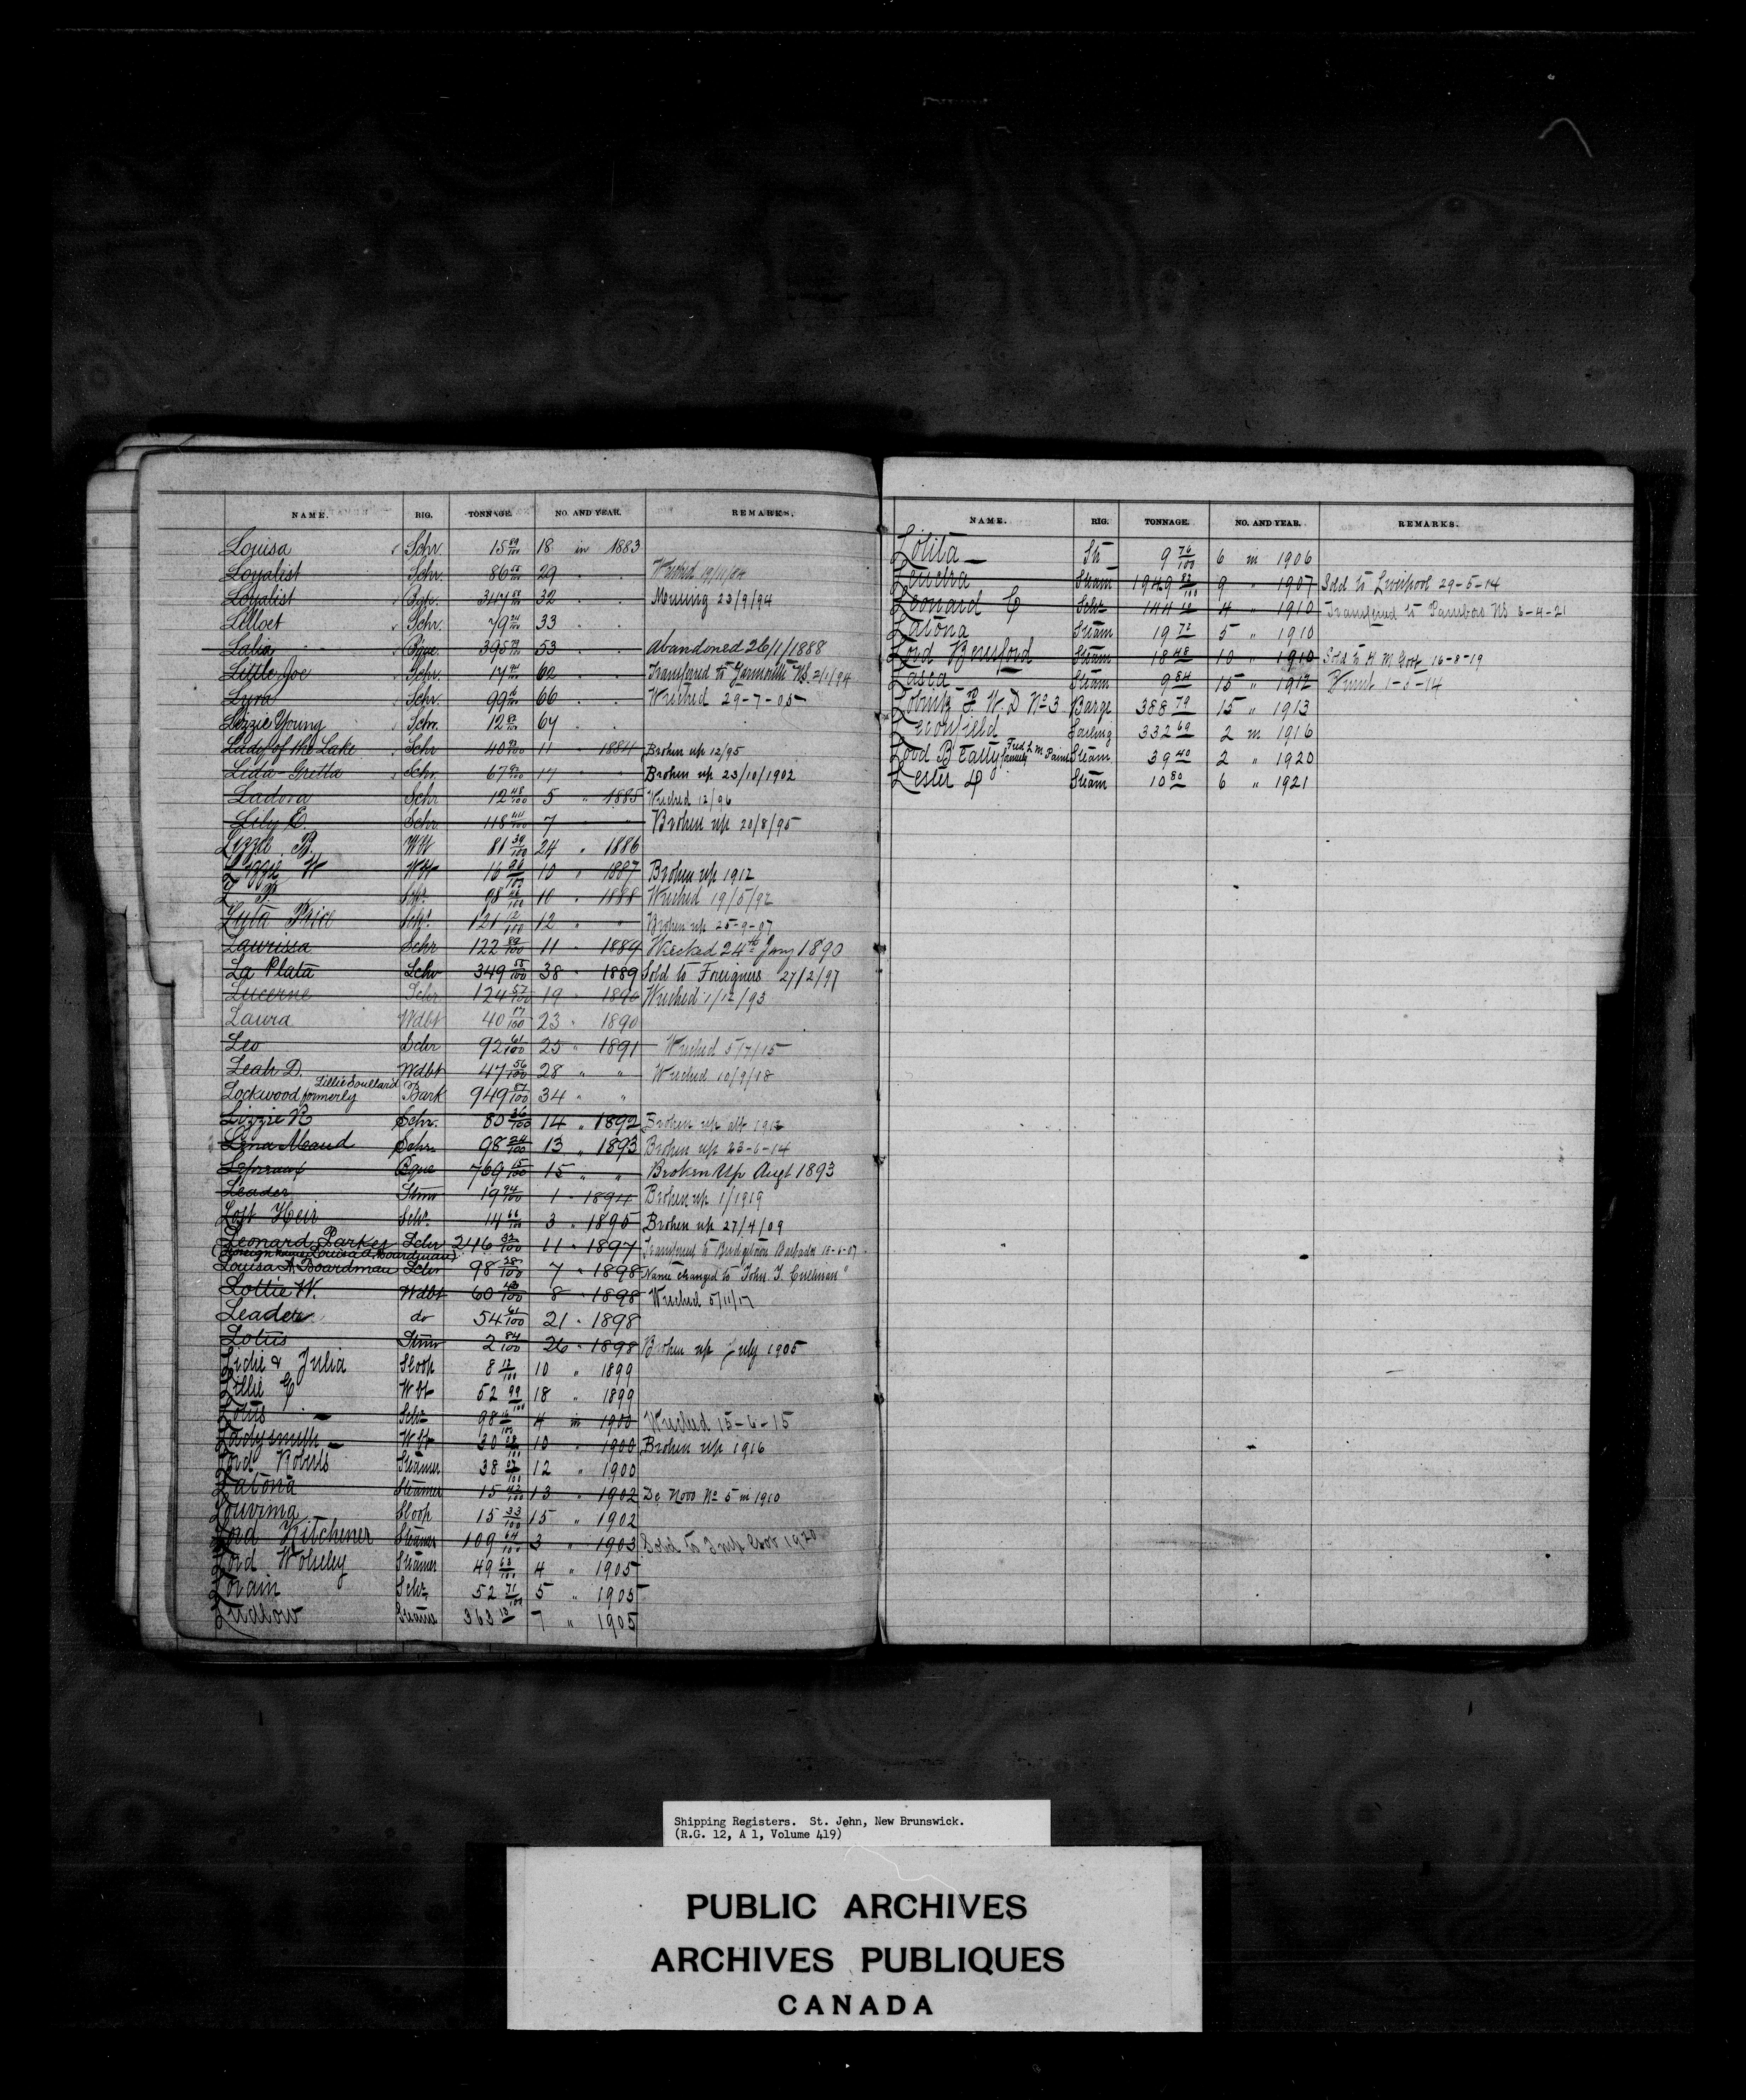 NAME. RIG. TONNAGE. NO. AND YEAR. REMARKS.
Louisa Schr. 15 89/100 18 in 1883
Loyalist Schr. 86 55/100 29 . . Wrecked 19/11/84
Loyalist Bqe. 347 32 . . Missing 23/9/94
Lilloet Schr. 79 33 . .
Bque. 395 53 . . Abandoned 26/1/1888
Little Joe Schr. 17 62 . . Transfered to Yarmouth NS. 2/1/94
Lyra Schr. 99 66 . . Wrecked 29-7-05
Lizzie Young Schr. 12 67 . .
Lady of the Lake Schr 40 11 " 1884 Broken up 12/95
Lida Gretta Schr. 67 17 " " Broken up 23/10/1902
Ladora Schr 12 48/100 5 " 1885 Wrecked 12/96
Lily E. Schr. 118 44/100 7 " " Broken up 20/8/95
Lizzie B. Wbt 81 39/100 24 " 1886
Lizzie W Wbt 16 96/100 10 " 1887 Broken up 1912
L. P. Schr. 98 10 " 1888 Wrecked 19/5/92
Lyta Price Schr. 121 12/100 12 " " Broken up 25-9-07
Laurissa Schr 122 89/100 11 " 1889 Wrecked 24th Jany 1890
La Plata Schr 349 55/100 38 " 1889 Sold to Foreigners 27/2/97
Lucerne Schr 124 57/100 19 " 1890 Wrecked 1/12/93
Laura Wdbt 40 17/100 23 " 1890
Leo Schr 92 61/100 25 " 1891 Wrecked 5/7/15
Leah D. Wdbt 47 56/100 28 " " Wrecked 10/9/18
Lockwood formerly Lillie Soullard Bark 949 87/100 34 " "
Lizzie B Schr. 80 36/100 14 " 1892 Broken up abt 1912
Lena Maud Schr. 98 24/100 13 " 1893 Broken up 23-6-14
Lepreaux Bque 769 15/100 15 " " Broken Up Augt 1893
Leader Stmr 19 94/100 1 " 1894 Broken up 1/1919
Lost Heir Schr. 14 66/100 3 " 1895 Broken up 27/4/09
Leonard Parker Schr 246 32/100 11 " 1897 Transferred to Bridgetown Barbados 18-6-07
(Foreign name Louisa A Boardman)
Louisa A Boardman Schr 98 28/100 7 " 1898 Name changed to "John J. Cullinan"
Lottie W. Wdbt 60 43/100 8 " 1898 Wrecked 5/11/17
Leader do 54 61/100 21 " 1898
Lotus Stmr 2 84/100 26 " 1898 Broken up July 1905
& Julia Sloop 8 18/100 10 " 1899
Lillie G Wbt 52 99/100 18 " 1899
Lotus Schr 98 4 in 1900 Wrecked 15-6-15
Ladysmith Wbt 30 28/100 10 " 1900 Broken up 1916
Lord Roberts Steamer 38 07/100 12 " 1900
Latona Steamer 15 42/100 13 " 1902 De Novo No 5 in 1910
Louvima Sloop 15 33/100 15 " 1902
Lord Kitchener Steamer 109 64/100 3 " 1903 Sold to Govt 1920
Lord Wolseley Steamer 49 63/100 4 " 1905
Lorain Schr 52 71/100 5 " 1905
Ludlow Steamer 363 13 7 " 1905
NAME. RIG. TONNAGE. NO. AND YEAR. REMARKS.
Lolita Str 9 76/100 6 in 1906
Leuctra Steam 1949 82/100 9 " 1907 Sold to Liverpool 29-5-14
Leonard C Schr 144 18 4 " 1910 Transfered to Parrsboro NS 6-4-21
Latona Steam 19 72 5 " 1910
Lord Beresford Steam 18 48 10 " 1910 Sold to 16-8-19
Lasca Steam 9 84 15 " 1912 Burnt 1-5-14
W. D No 3 Barge 388 79 15 " 1913
Sailing 332 69 2 in 1916
Lord Beatty formerly Fred L. M. Paint Steam 39 40 2 " 1920
Lester L Steam 10 80 6 " 1921
Shipping Registers. St. John, New Brunswick.
(R.G. 12, A 1, Volume 419)
PUBLIC ARCHIVES
ARCHIVES PUBLIQUES
CANADA